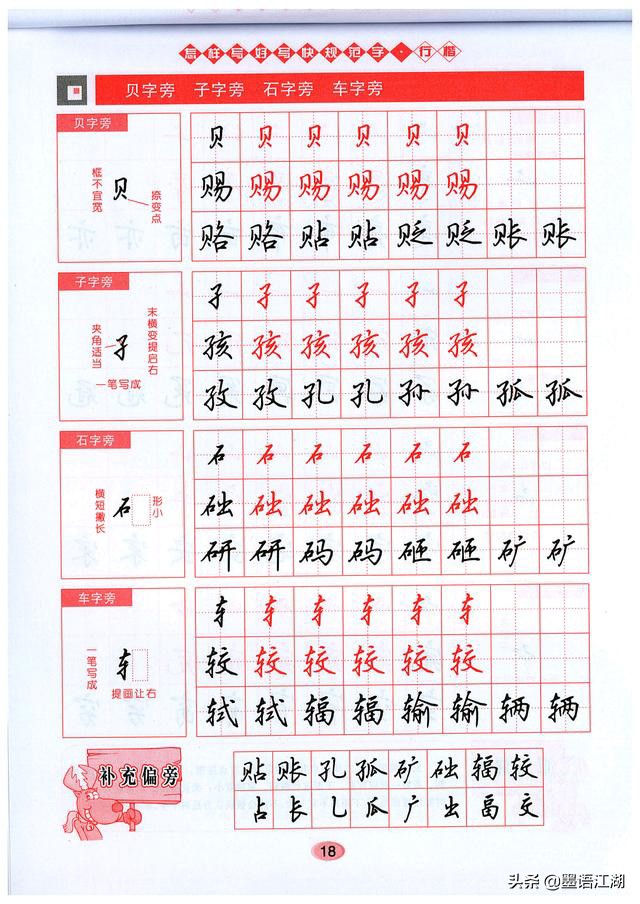 怎样写好写快规范字·行楷
贝字旁 子字旁 石字旁 车字旁
贝字旁
框不宜宽
贝
捺变点
贝 贝 贝 贝 贝 贝
赐 赐 赐 赐 赐 赐
赂 赂 贴 贴 贬 贬 账 账
子字旁
夹角适当
子
末横变提启右
一笔写成
子 子 子 子 子 子
孩 孩 孩 孩 孩 孩
孜 孜 孔 孔 孙 孙 孤 孤
石字旁
横短撇长
石
形小
石 石 石 石 石 石
础 础 础 础 础 础
研 研 码 码 砸 砸 矿 矿
车字旁
一笔写成
车
提画让右
车 车 车 车 车 车
较 较 较 较 较 较
轼 轼 辐 辐 输 输 辆 辆
补充偏旁
贴 账 孔 孤 矿 础 辐 较
占 长 乚 瓜 广 出 畐 交
18
头条@墨语江湖